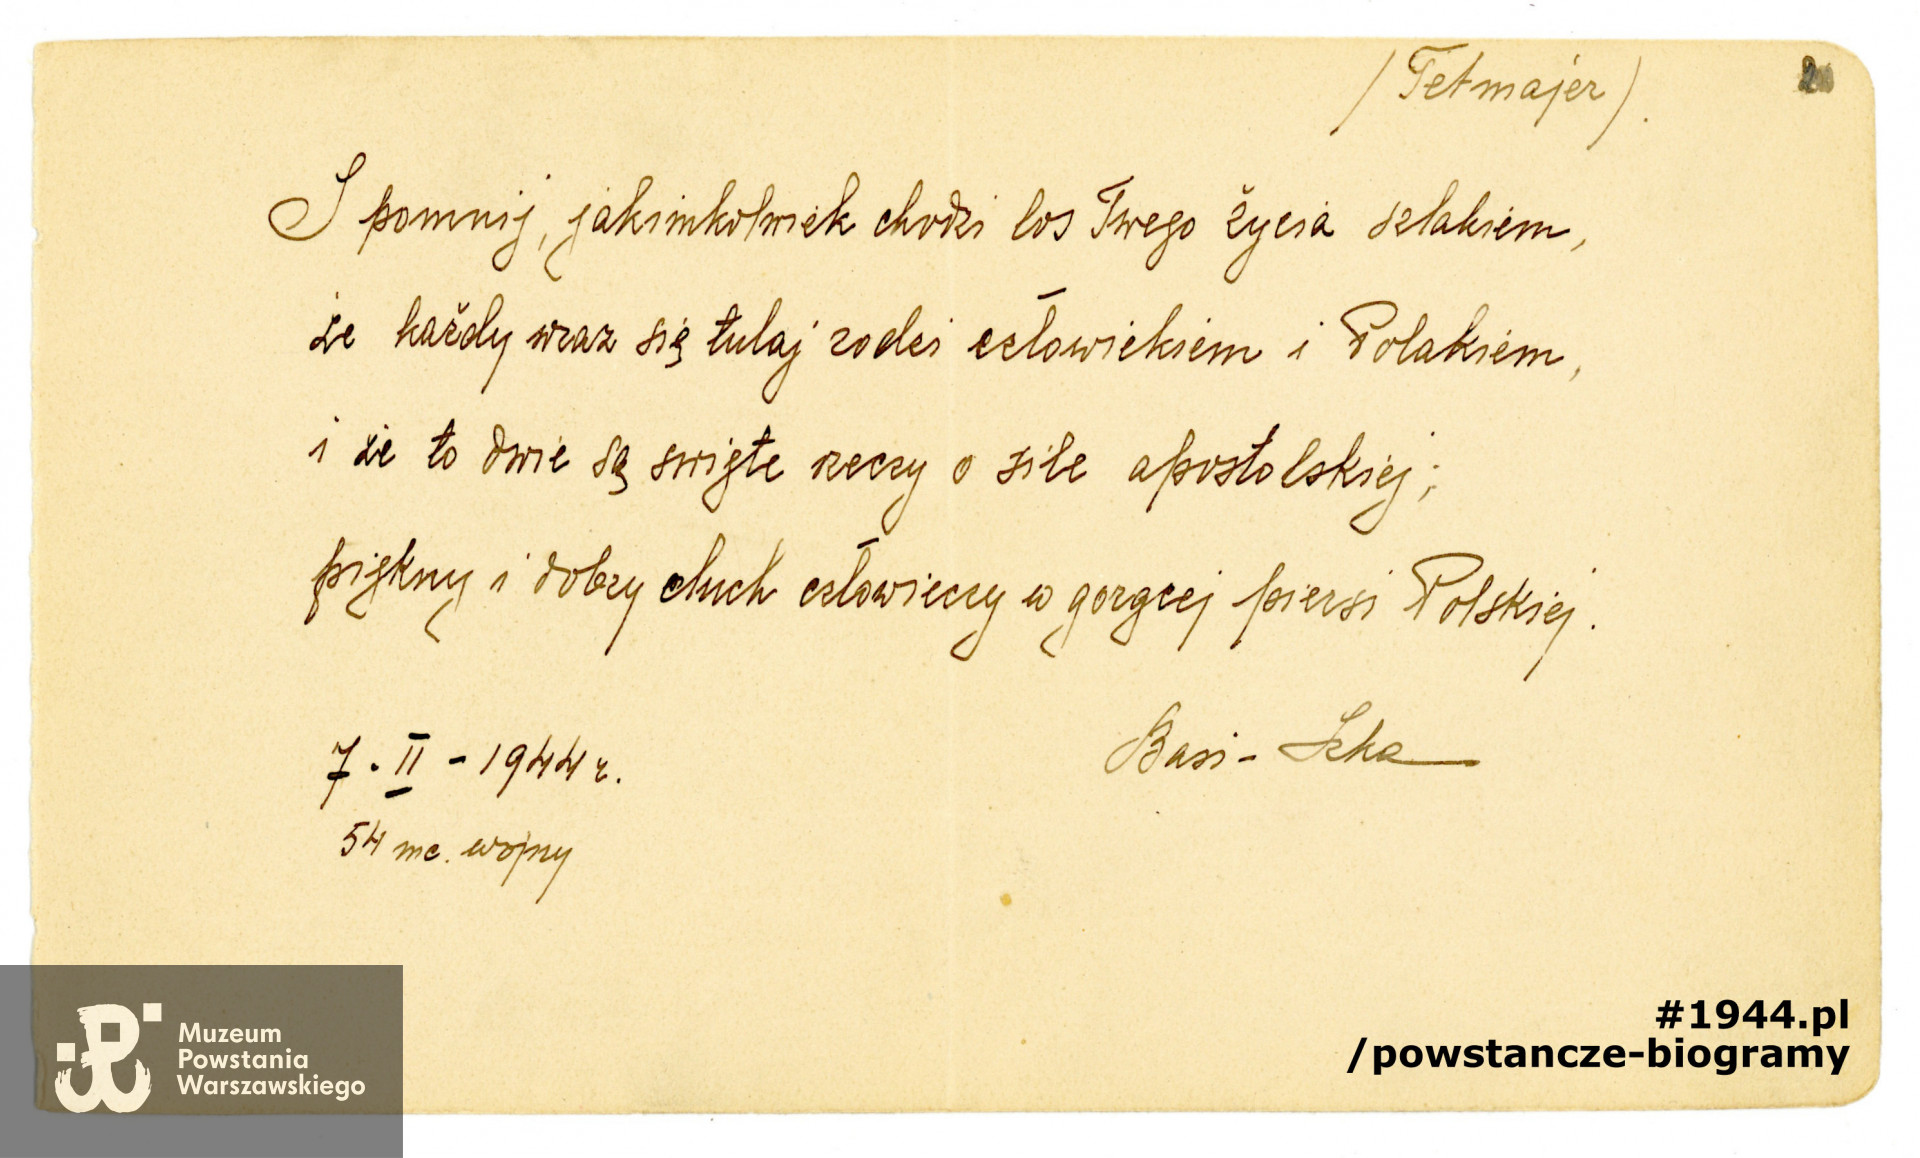 /Tetmajer/.
2
I pomnij, jakimkolwiek chodzi los Twego życia szlakiem,
że każdy wraz się tutaj rodzi człowiekiem i Polakiem,
i że to dwie są święte rzeczy o sile apostolskiej;
piękny i dobry duch człowieczy w gorącej piersi Polskiej.
Basi-
7. II - 1944 r.
54 mc. wojny
Muzeum
Powstania
Warszawskiego
#1944.pl
/powstancze-biogramy